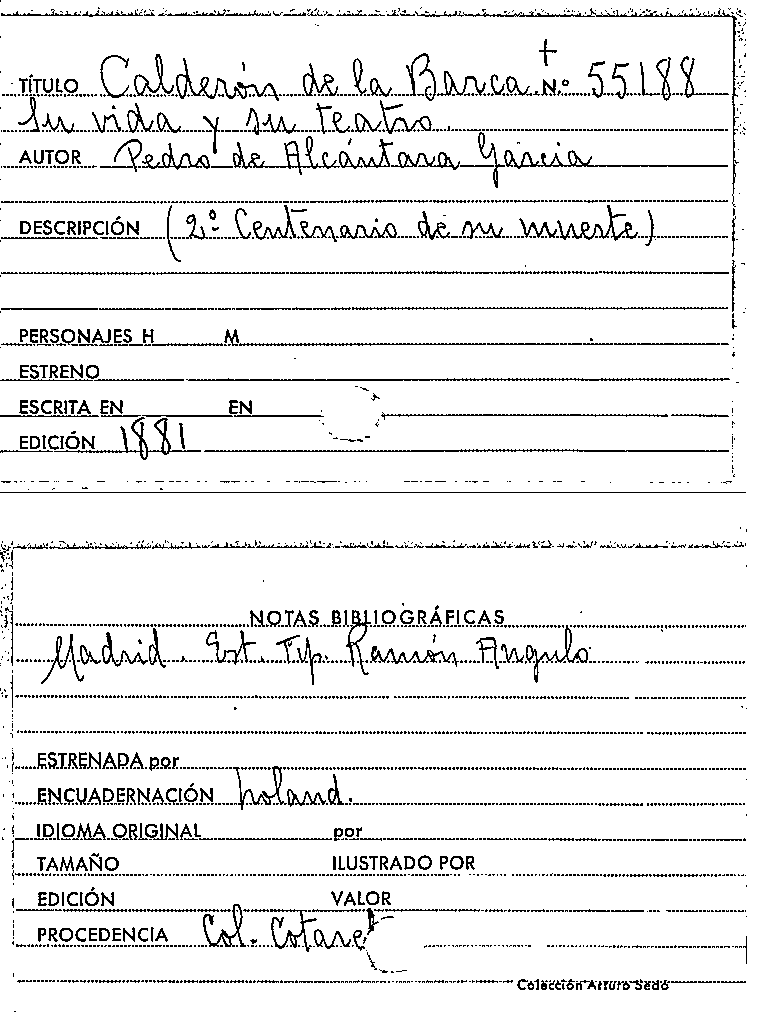 TÍTULO Calderón de la Barca. + N.º 55188
Su vida y su teatro.
AUTOR Pedro de Alcántara García
DESCRIPCIÓN (2º Centenario de su muerte)
PERSONAJES H M
ESTRENO
ESCRITA EN EN
EDICIÓN 1881
NOTAS BIBLIOGRÁFICAS
Madrid. Est. Tip. Ramón Angulo
ESTRENADA por
ENCUADERNACIÓN holand.
IDIOMA ORIGINAL por
TAMAÑO ILUSTRADO POR
EDICIÓN VALOR
PROCEDENCIA Col. Cotare
Colección Arturo Sedó